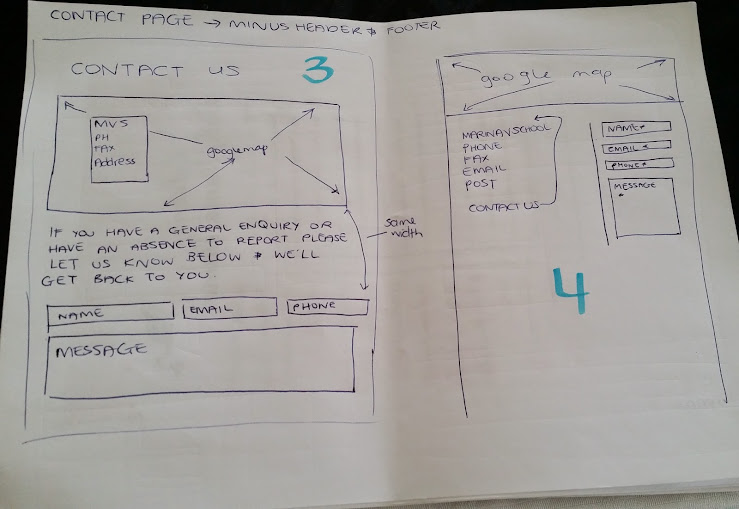 CONTACT PAGE → MINUS HEADER & FOOTER
CONTACT US
3
MVS
PH
FAX
Address
googlemap
IF YOU HAVE A GENERAL ENQUIRY OR
HAVE AN ABSENCE TO REPORT PLEASE
LET US KNOW BELOW & WE'LL
GET BACK TO YOU.
same
width
NAME
EMAIL
PHONE
MESSAGE
google map
MARINAVSCHOOL
PHONE
FAX
EMAIL
POST
CONTACT US
NAME*
EMAIL *
PHONE*
MESSAGE
*
4